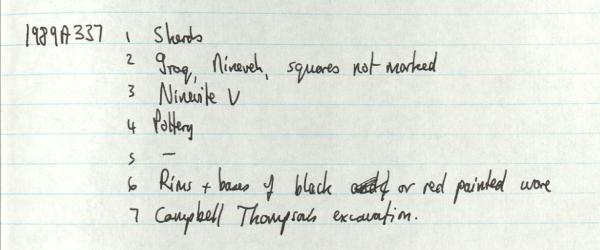 1989A337 1 Sherds
2 Iraq, Nineveh, squares not marked
3 Ninevite V
4 Pottery
5 —
6 Rims + bases of black or red painted ware
7 Campbell Thompson's excavation.